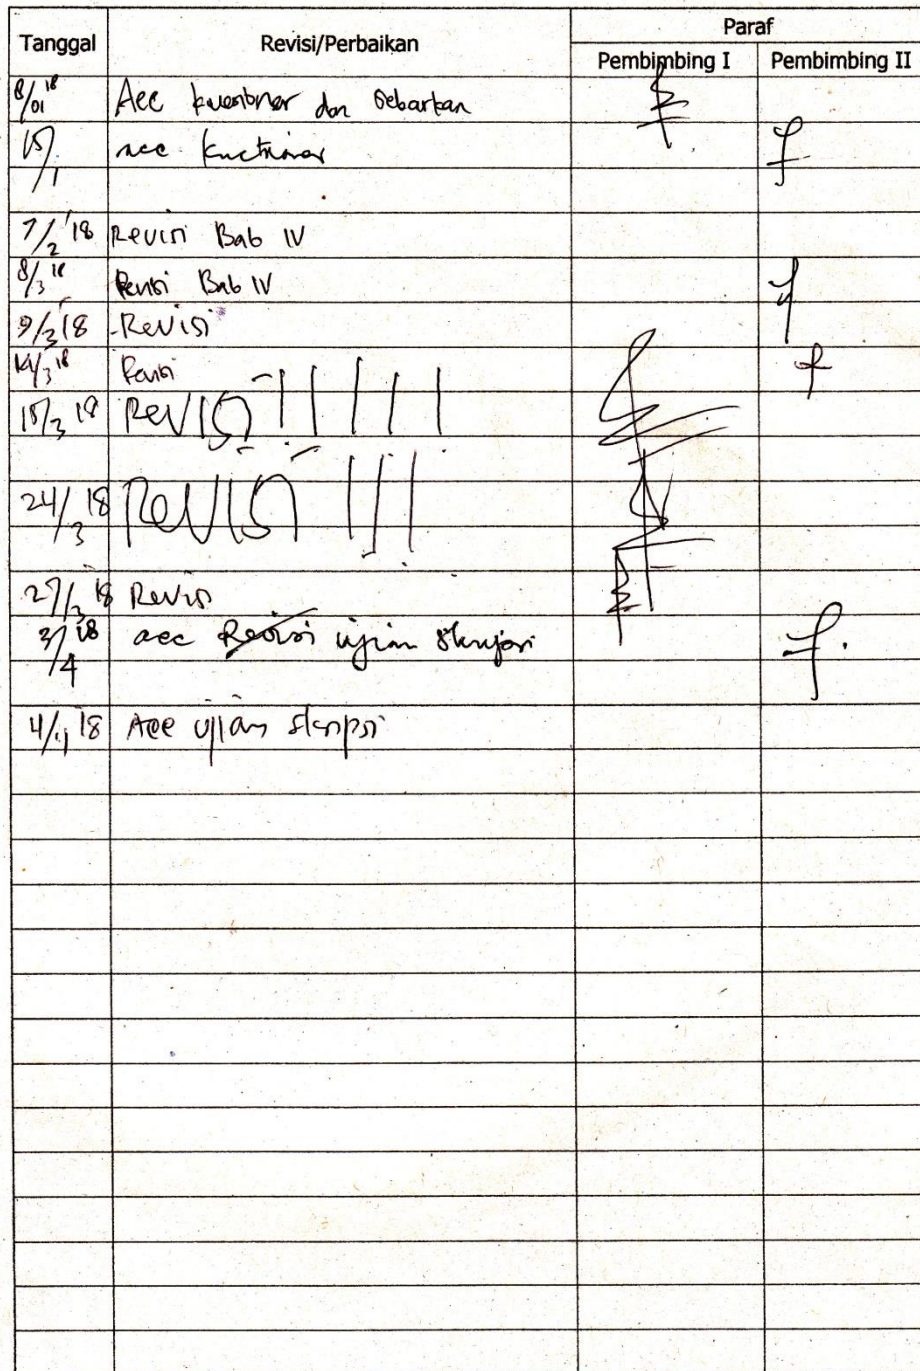 Tanggal Revisi/Perbaikan Paraf
Pembimbing I Pembimbing II
8/01 18 Acc kuesioner dan sebarkan
15/1 acc kuesioner
7/2 '18 Revisi Bab IV
8/3 18 Revisi Bab IV
9/3 '18 Revisi
14/3 18 Revisi
15/3 18 Revisi !!!!!
24/3 18 Revisi !!!
27/3 18 Revisi
3/4 18 acc Revisi ujian skripsi
4/4 18 Acc ujian skripsi